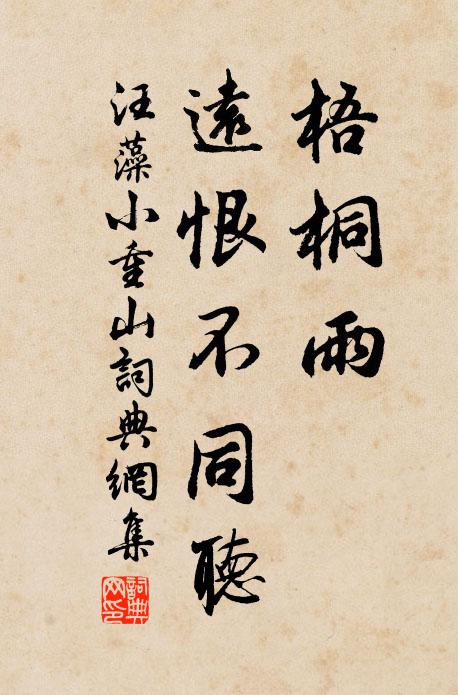 梧桐雨
遠恨不同聽
汪藻小重山詞典網集
詞典網印